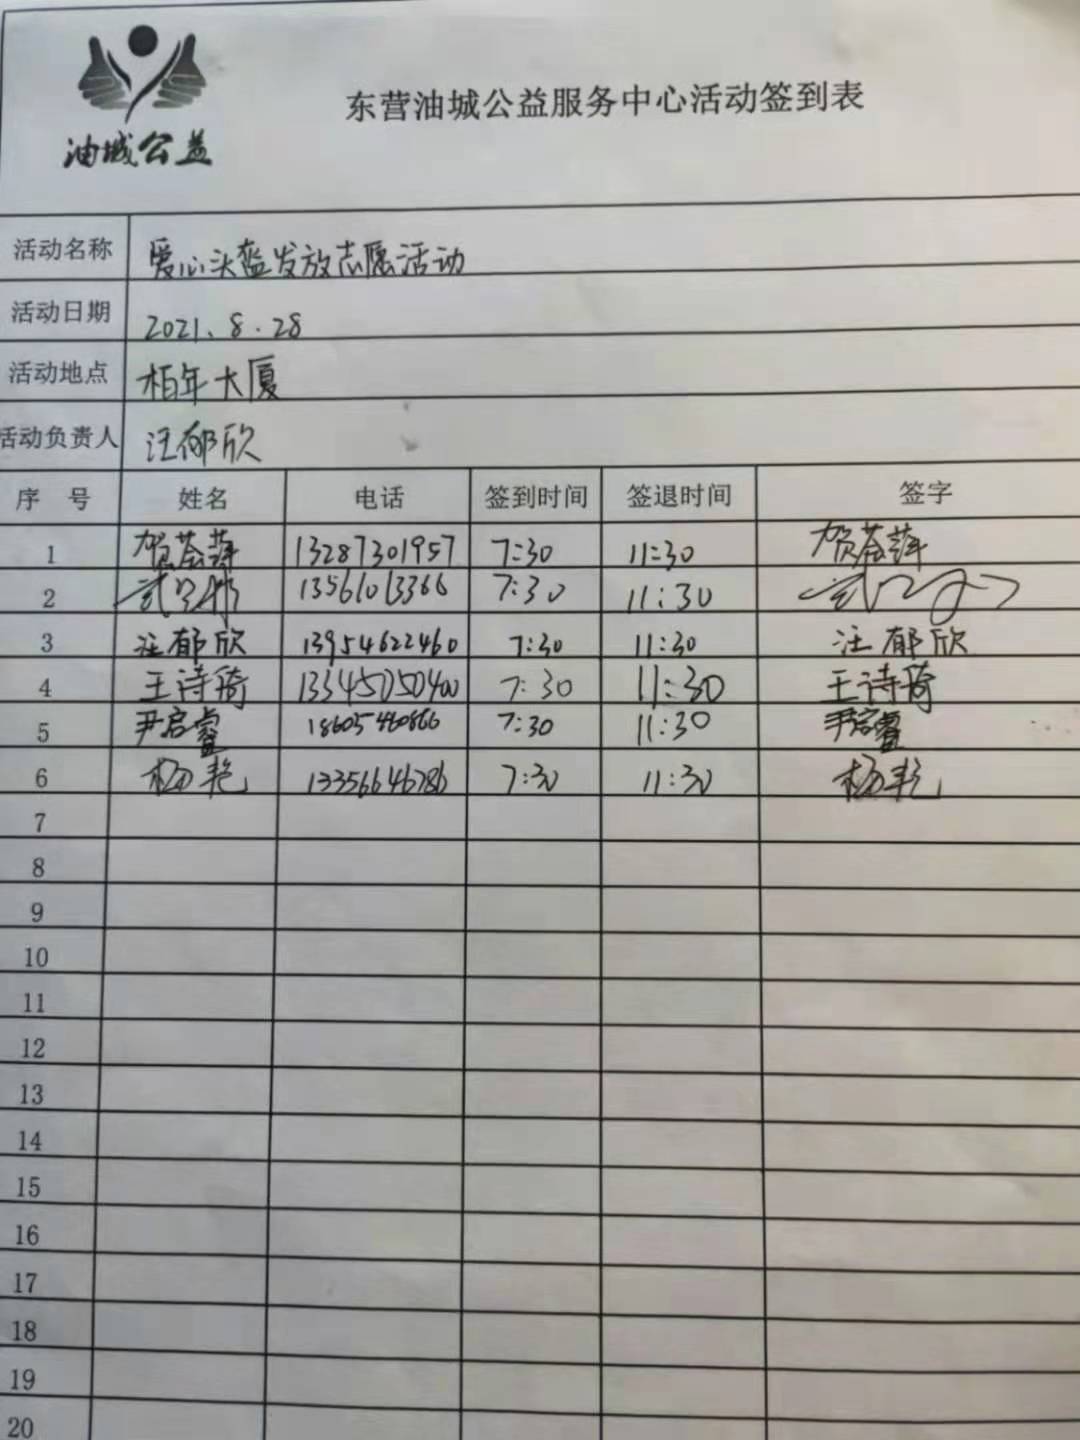 油城公益
东营油城公益服务中心活动签到表
活动名称 爱心头盔发放志愿活动
活动日期 2021.8.28
活动地点 柏年大厦
活动负责人 汪郁欣
序号 姓名 电话 签到时间 签退时间 签字
1 贺荟萍 13287301957 7:30 11:30 贺荟萍
2 13561013366 7:30 11:30
3 汪郁欣 13954622460 7:30 11:30 汪郁欣
4 王诗琦 7:30 11:30 王诗琦
5 尹启睿 18605460866 7:30 11:30 尹启睿
6 杨艳 13356646786 7:30 11:30 杨艳
7
8
9
10
11
12
13
14
15
16
17
18
19
20